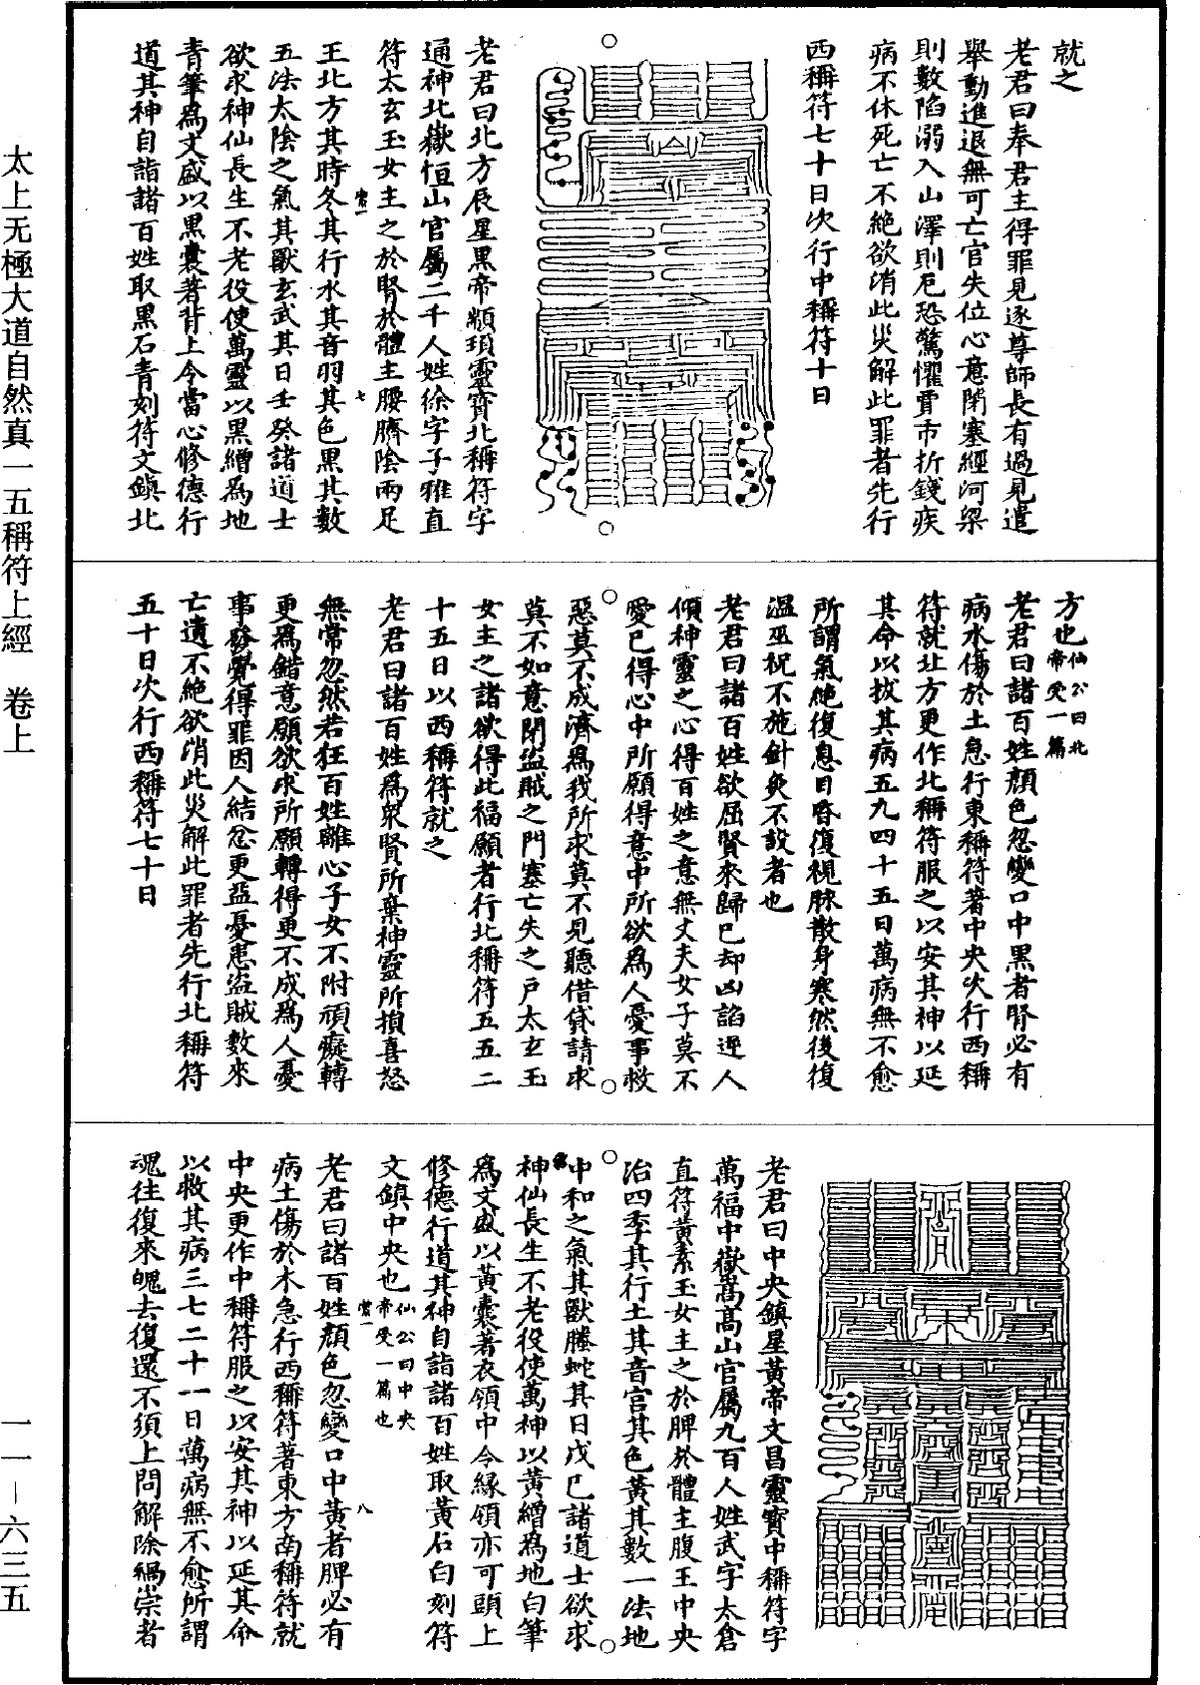 太上无極大道自然真一五稱符上經　卷上
一一－六三五
就之
老君曰奉君主得罪見逐尊師長有過見遣
舉動進退無可亡官失位心意閉塞經河梁
則數陷溺入山澤則厄恐驚懼賈市折錢疾
病不休死亡不絕欲消此災解此罪者先行
西稱符七十日次行中稱符十日
老君曰北方辰星黑帝顓頊靈寶北稱符字
通神北嶽恒山官屬二千人姓徐字子雅直
符太玄玉女主之於腎於體主腰臍陰兩足
王北方其時冬其行水其音羽其色黑其數
五法太陰之氣其獸玄武其日壬癸諸道士
欲求神仙長生不老役使萬靈以黑繒為地
青筆為文盛以黑囊著背上令當心修德行
道其神自詣諸百姓取黑石青刻符文鎮北
方也仙公曰北帝受一篇
老君曰諸百姓顏色忽變口中黑者腎必有
病水傷於土急行東稱符著中央次行西稱
符就北方更作北稱符服之以安其神以延
其命以拔其病五九四十五日萬病無不愈
所謂氣絕復息目昏復視脉散身寒然後復
溫巫祝不施針灸不設者也
老君曰諸百姓欲屈賢來歸已却凶諂逆人
傾神靈之心得百姓之意無丈夫女子莫不
愛已得心中所願得意中所欲為人憂事救
惡莫不成濟為我所求莫不見聽借貸請求
莫不如意閉盜賊之門塞亡失之戶太玄玉
女主之諸欲得此福願者行北稱符五五二
十五日以西稱符就之
老君曰諸百姓為衆賢所棄神靈所損喜怒
無常忽然若狂百姓離心子女不附頑癡轉
更為錯意願欲求所願轉得更不成為人憂
事發覺得罪因人結忿更益憂患盜賊數來
亡遺不絕欲消此災解此罪者先行北稱符
五十日次行西稱符七十日
老君曰中央鎮星黃帝文昌靈寶中稱符字
萬福中嶽嵩高山官屬九百人姓武字太倉
直符黃素玉女主之於脾於體主腹王中央
治四季其行土其音宮其色黃其數一法地
中和之氣其獸螣蛇其日戊巳諸道士欲求
神仙長生不老役使萬神以黃繒為地白筆
為文盛以黃囊著衣領中令緣領亦可頭上
修德行道其神自詣諸百姓取黃石白刻符
文鎮中央也仙公曰中央帝受一篇也
老君曰諸百姓顏色忽變口中黃者脾必有
病土傷於木急行西稱符著東方南稱符就
中央更作中稱符服之以安其神以延其命
以救其病三七二十一日萬病無不愈所謂
魂往復來魄去復還不須上問解除禍祟者